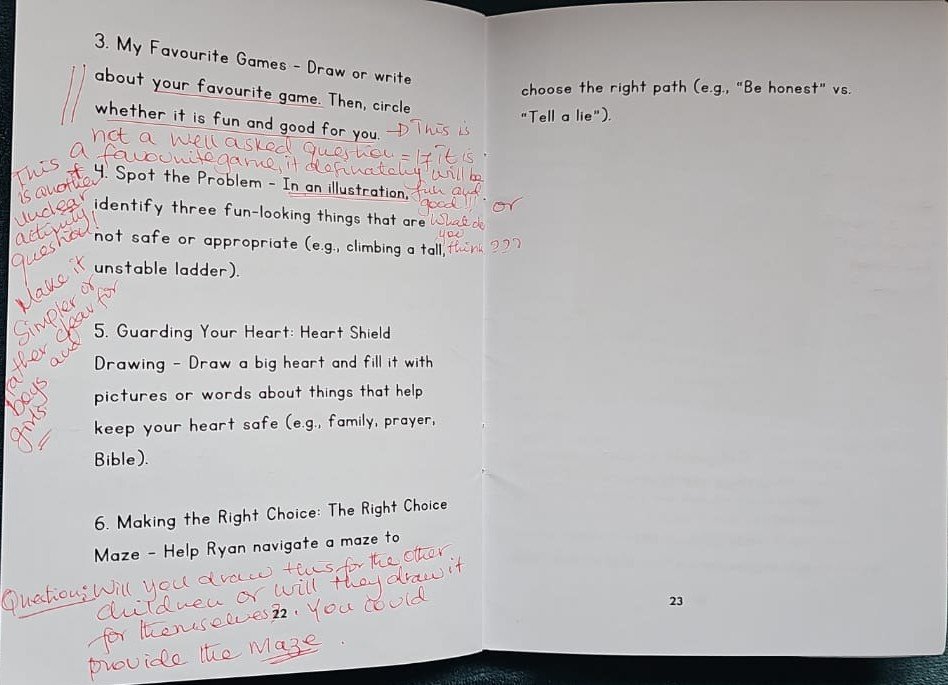 3. My Favourite Games - Draw or write
about your favourite game. Then, circle
whether it is fun and good for you. → This is
not a well asked question = If it is
a favourite game, it definately will be
fun and
good!! or
What do
you
think ???
4. Spot the Problem - In an illustration,
identify three fun-looking things that are
not safe or appropriate (e.g., climbing a tall,
unstable ladder).
This
is another
unclear
activity
question!
Make it
Simpler or
rather clear for
boys and
girls
5. Guarding Your Heart: Heart Shield
Drawing - Draw a big heart and fill it with
pictures or words about things that help
keep your heart safe (e.g., family, prayer,
Bible).
6. Making the Right Choice: The Right Choice
Maze - Help Ryan navigate a maze to
Question: Will you draw this for the other
children or will they draw it
for themselves?. You could
provide the Maze.
22
choose the right path (e.g., "Be honest" vs.
"Tell a lie").
23